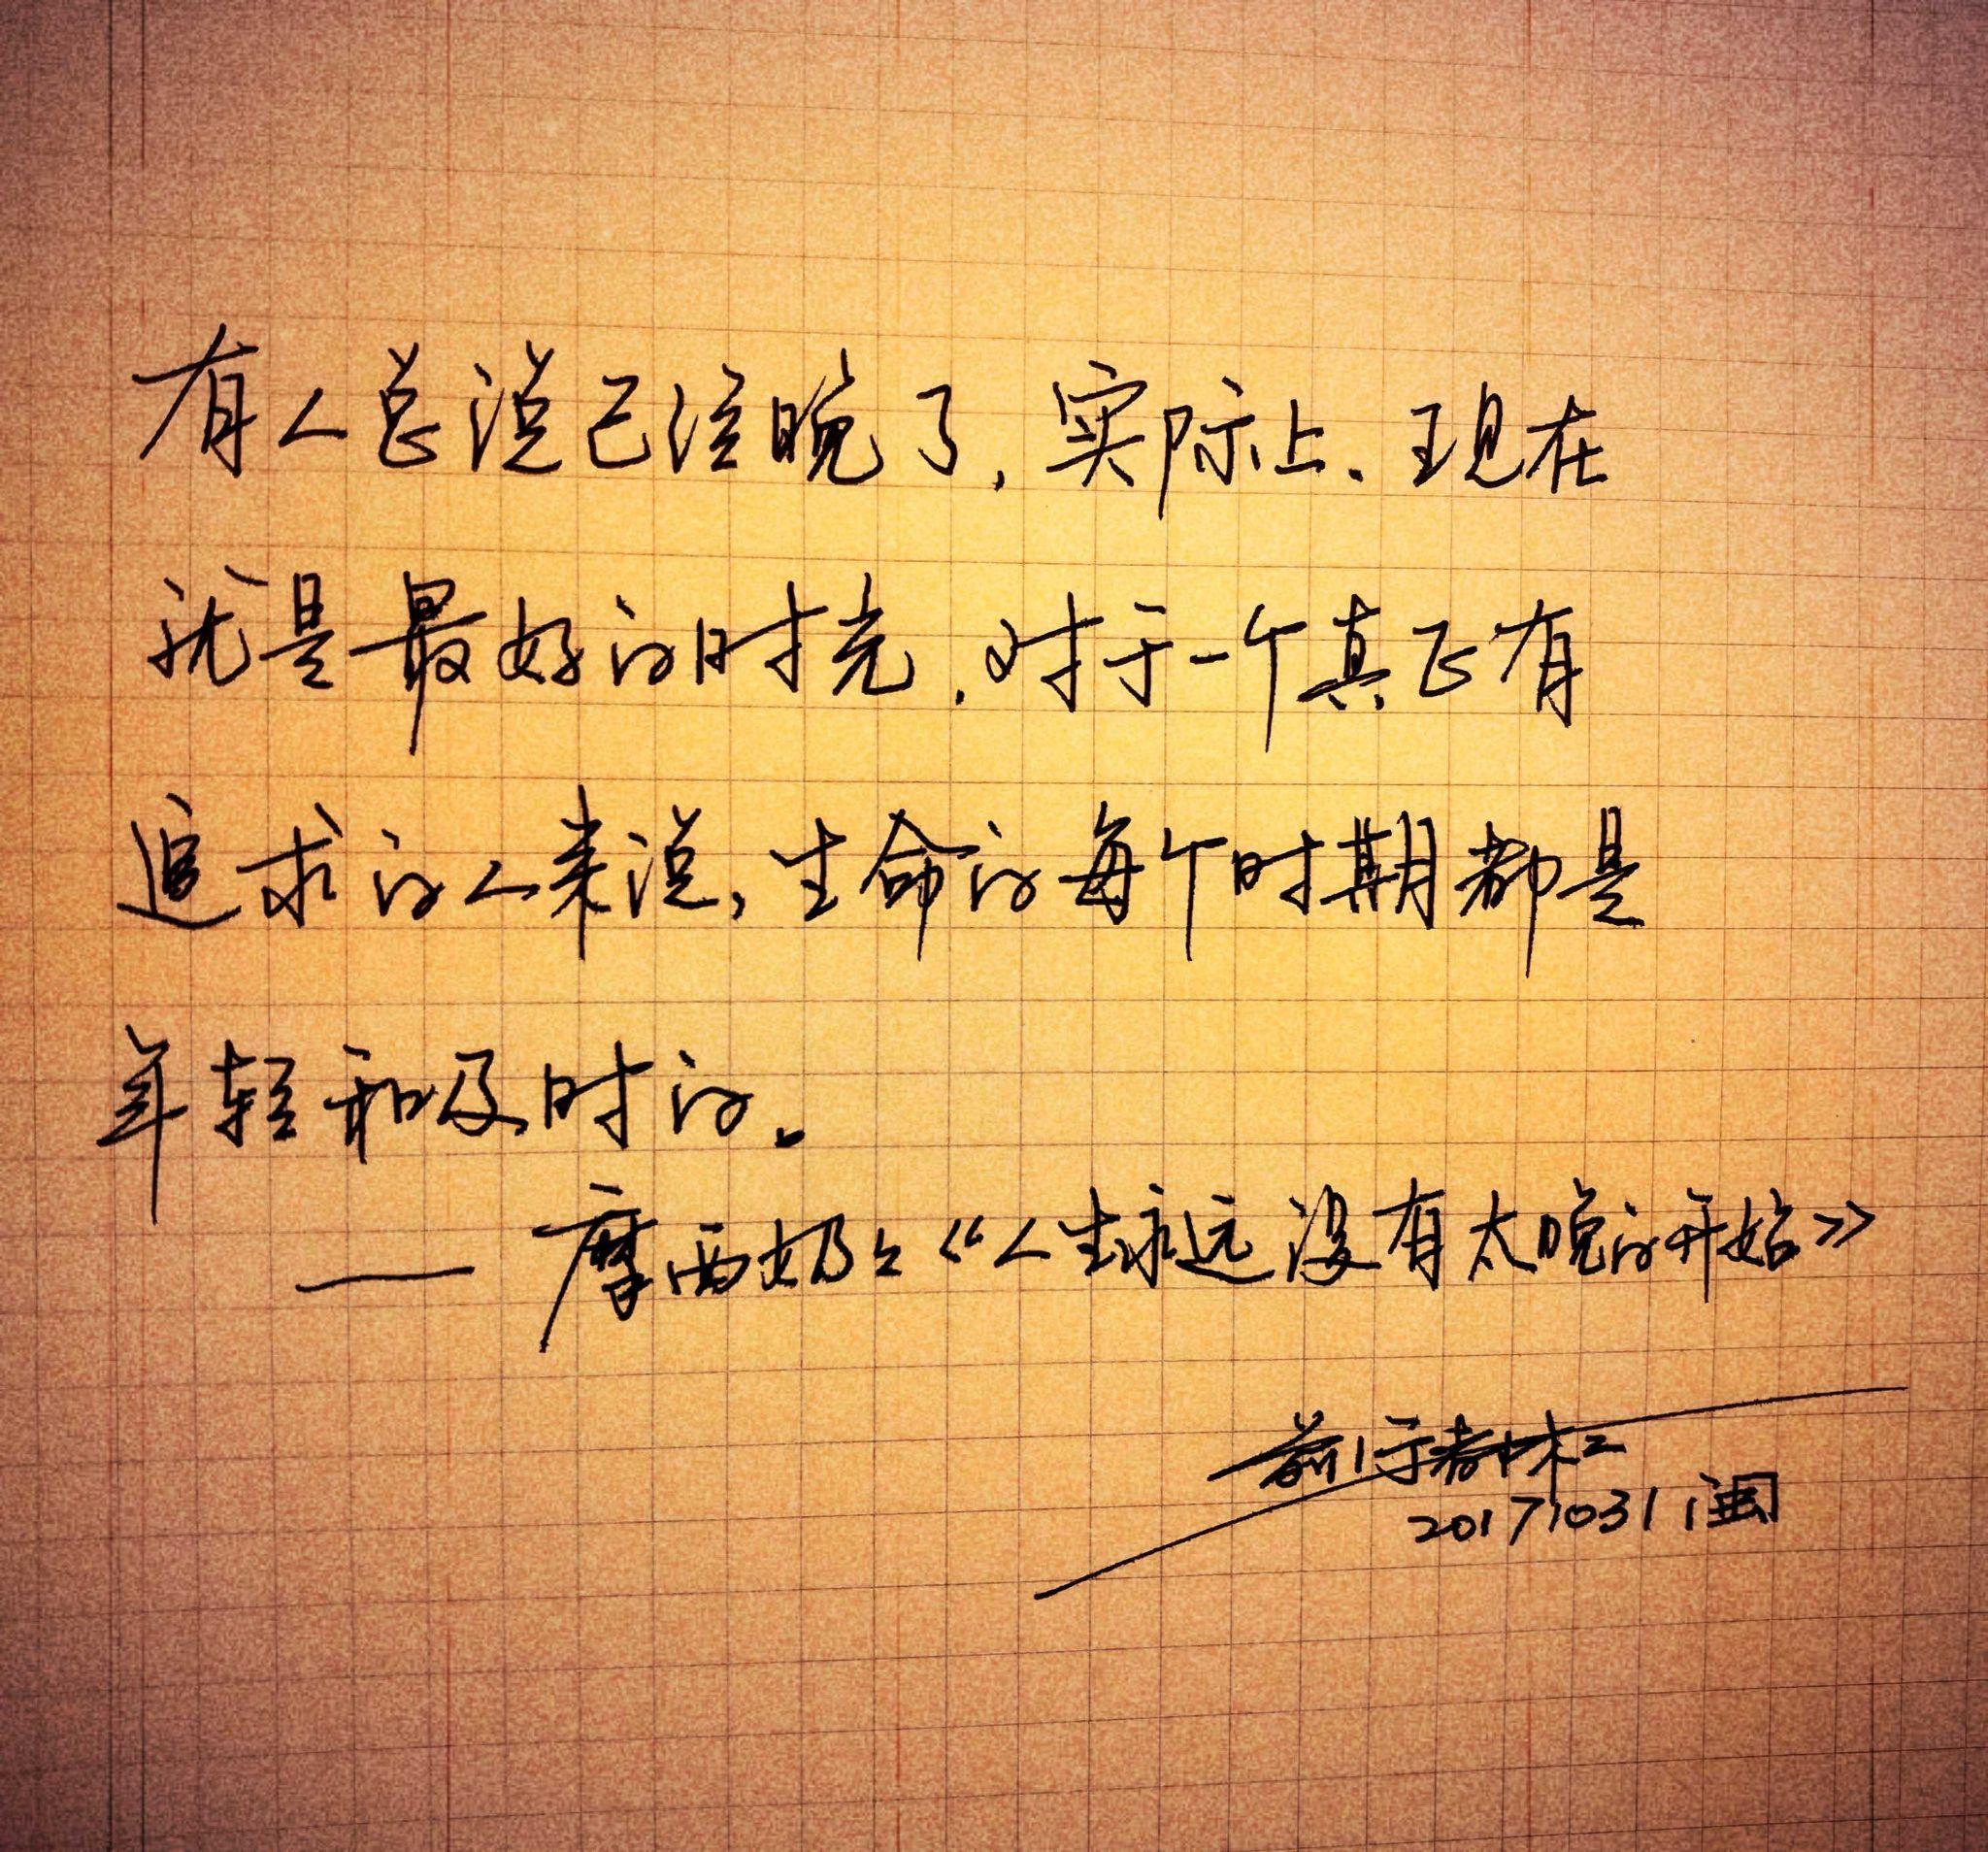 有人总说已经晚了,实际上、现在
就是最好的时光.对于一个真正有
追求的人来说,生命的每个时期都是
年轻和及时的。
——摩西奶々《人生永远没有太晚的开始》
20171031 闽